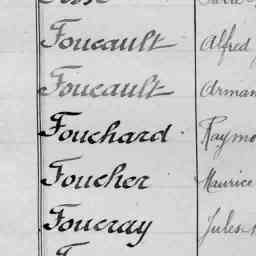 Foucault Alfred
Foucault Arman
Fouchard Raymo
Foucher Maurice
Foucray Jules